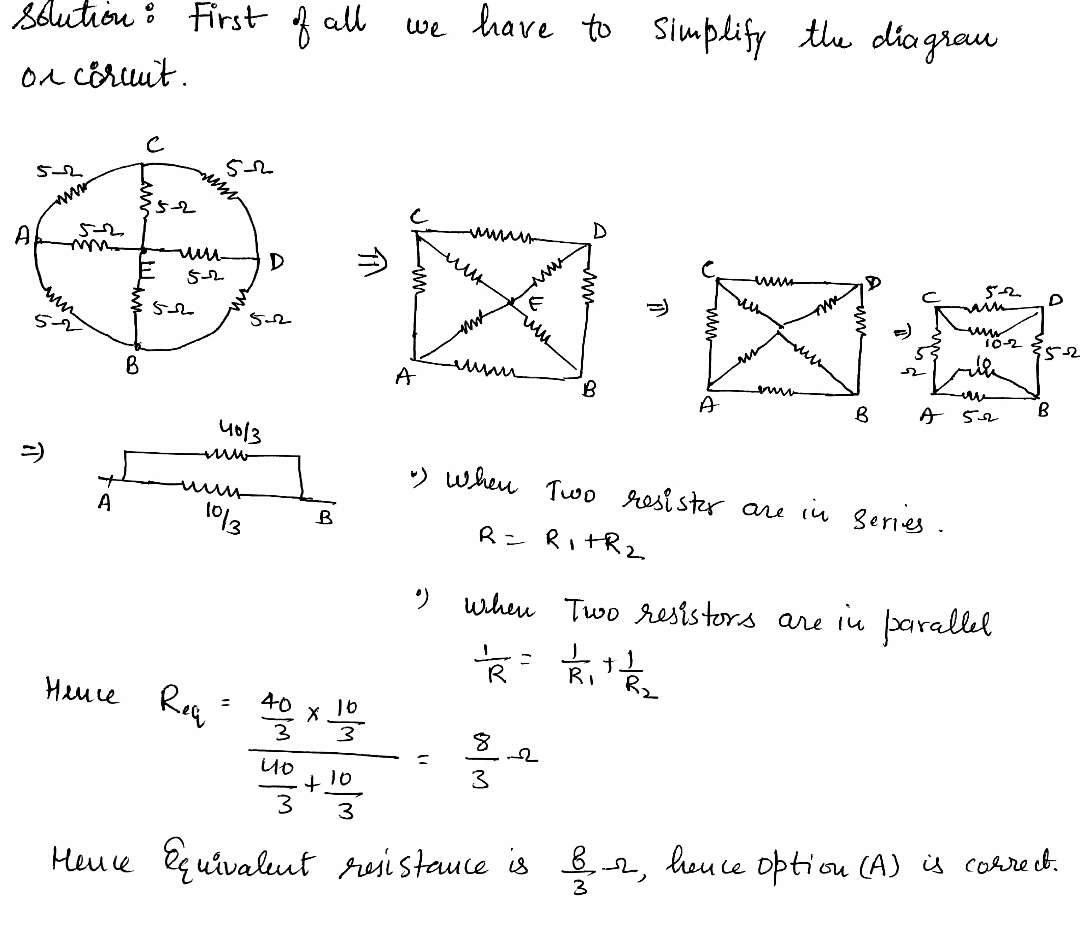 Solution: First of all we have to Simplify the diagram
or circuit.
C
5Ω
5Ω
5Ω
A
5Ω
E
5Ω
D
5Ω
5Ω
5Ω
B
⇒
C
D
E
A
B
⇒
C
D
A
B
⇒
C
5Ω
D
10Ω
5Ω
5Ω
10
A
5Ω
B
⇒
40/3
A
10/3
B
•) When Two resistor are in Series.
R = R1 + R2
•) when Two resistors are in parallel
1/R = 1/R1 + 1/R2
Hence Req = (40/3 × 10/3) / (40/3 + 10/3) = 8/3 Ω
Hence Equivalent resistance is 8/3 Ω, hence option (A) is correct.